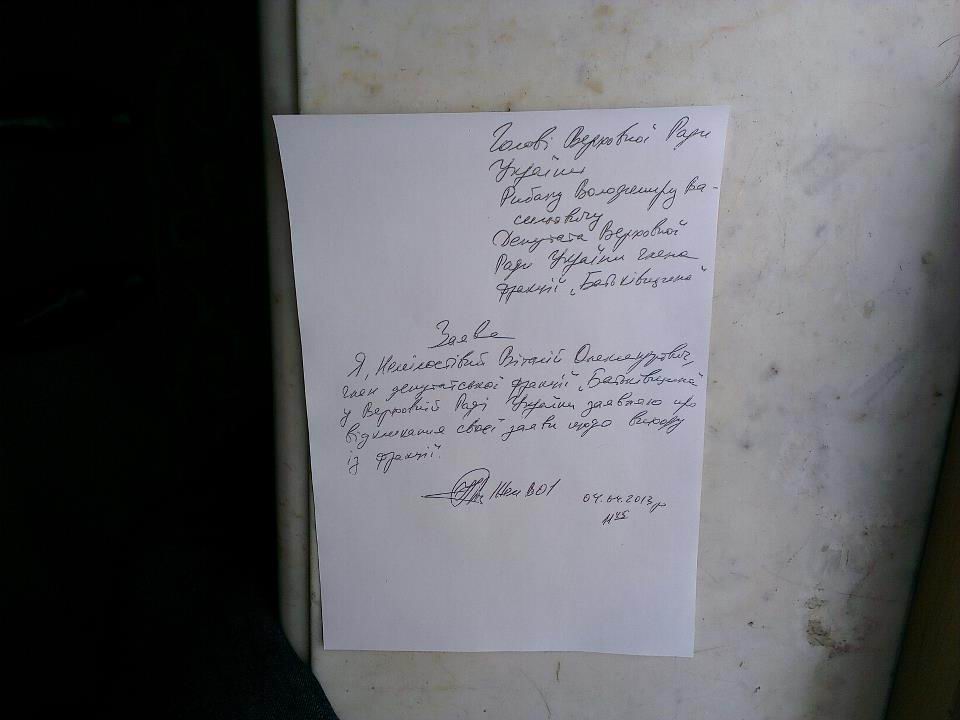 Голові Верховної Ради
України
Рибаку Володимиру Ва-
сильовичу
Депутата Верховної
Ради України члена
фракції „Батьківщина"
Заява
Я, Немілостівий Віталій Олександрович,
член депутатської фракції „Батьківщина"
у Верховній Раді України заявляю про
відкликання своєї заяви щодо виходу
із фракції.
04.04.2013р
11 45